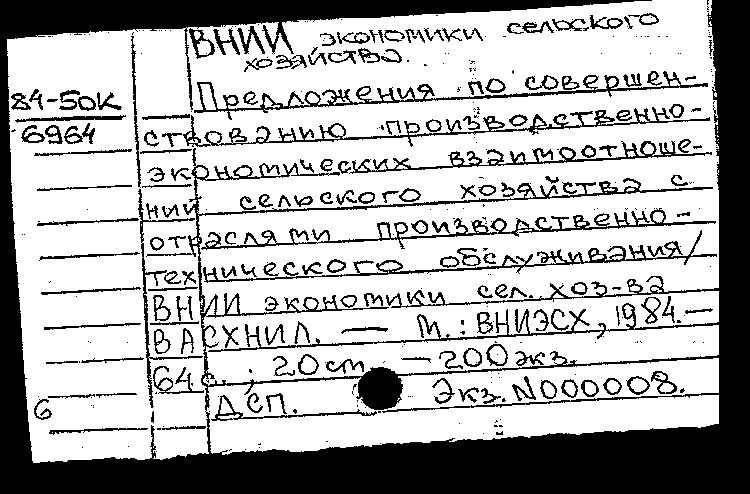 ВНИИ экономики сельского
хозяйства.
84-50К
6964
Предложения по совершен-
ствованию производственно-
экономических взаимоотноше-
ний сельского хозяйства с
отраслями производственно-
технического обслуживания/
ВНИИ экономики сел. хоз-ва
ВАСХНИЛ. — М.: ВНИЭСХ, 1984.—
64 с.; 20 cm — 200 экз.
ДСП. Экз. N000008.
6